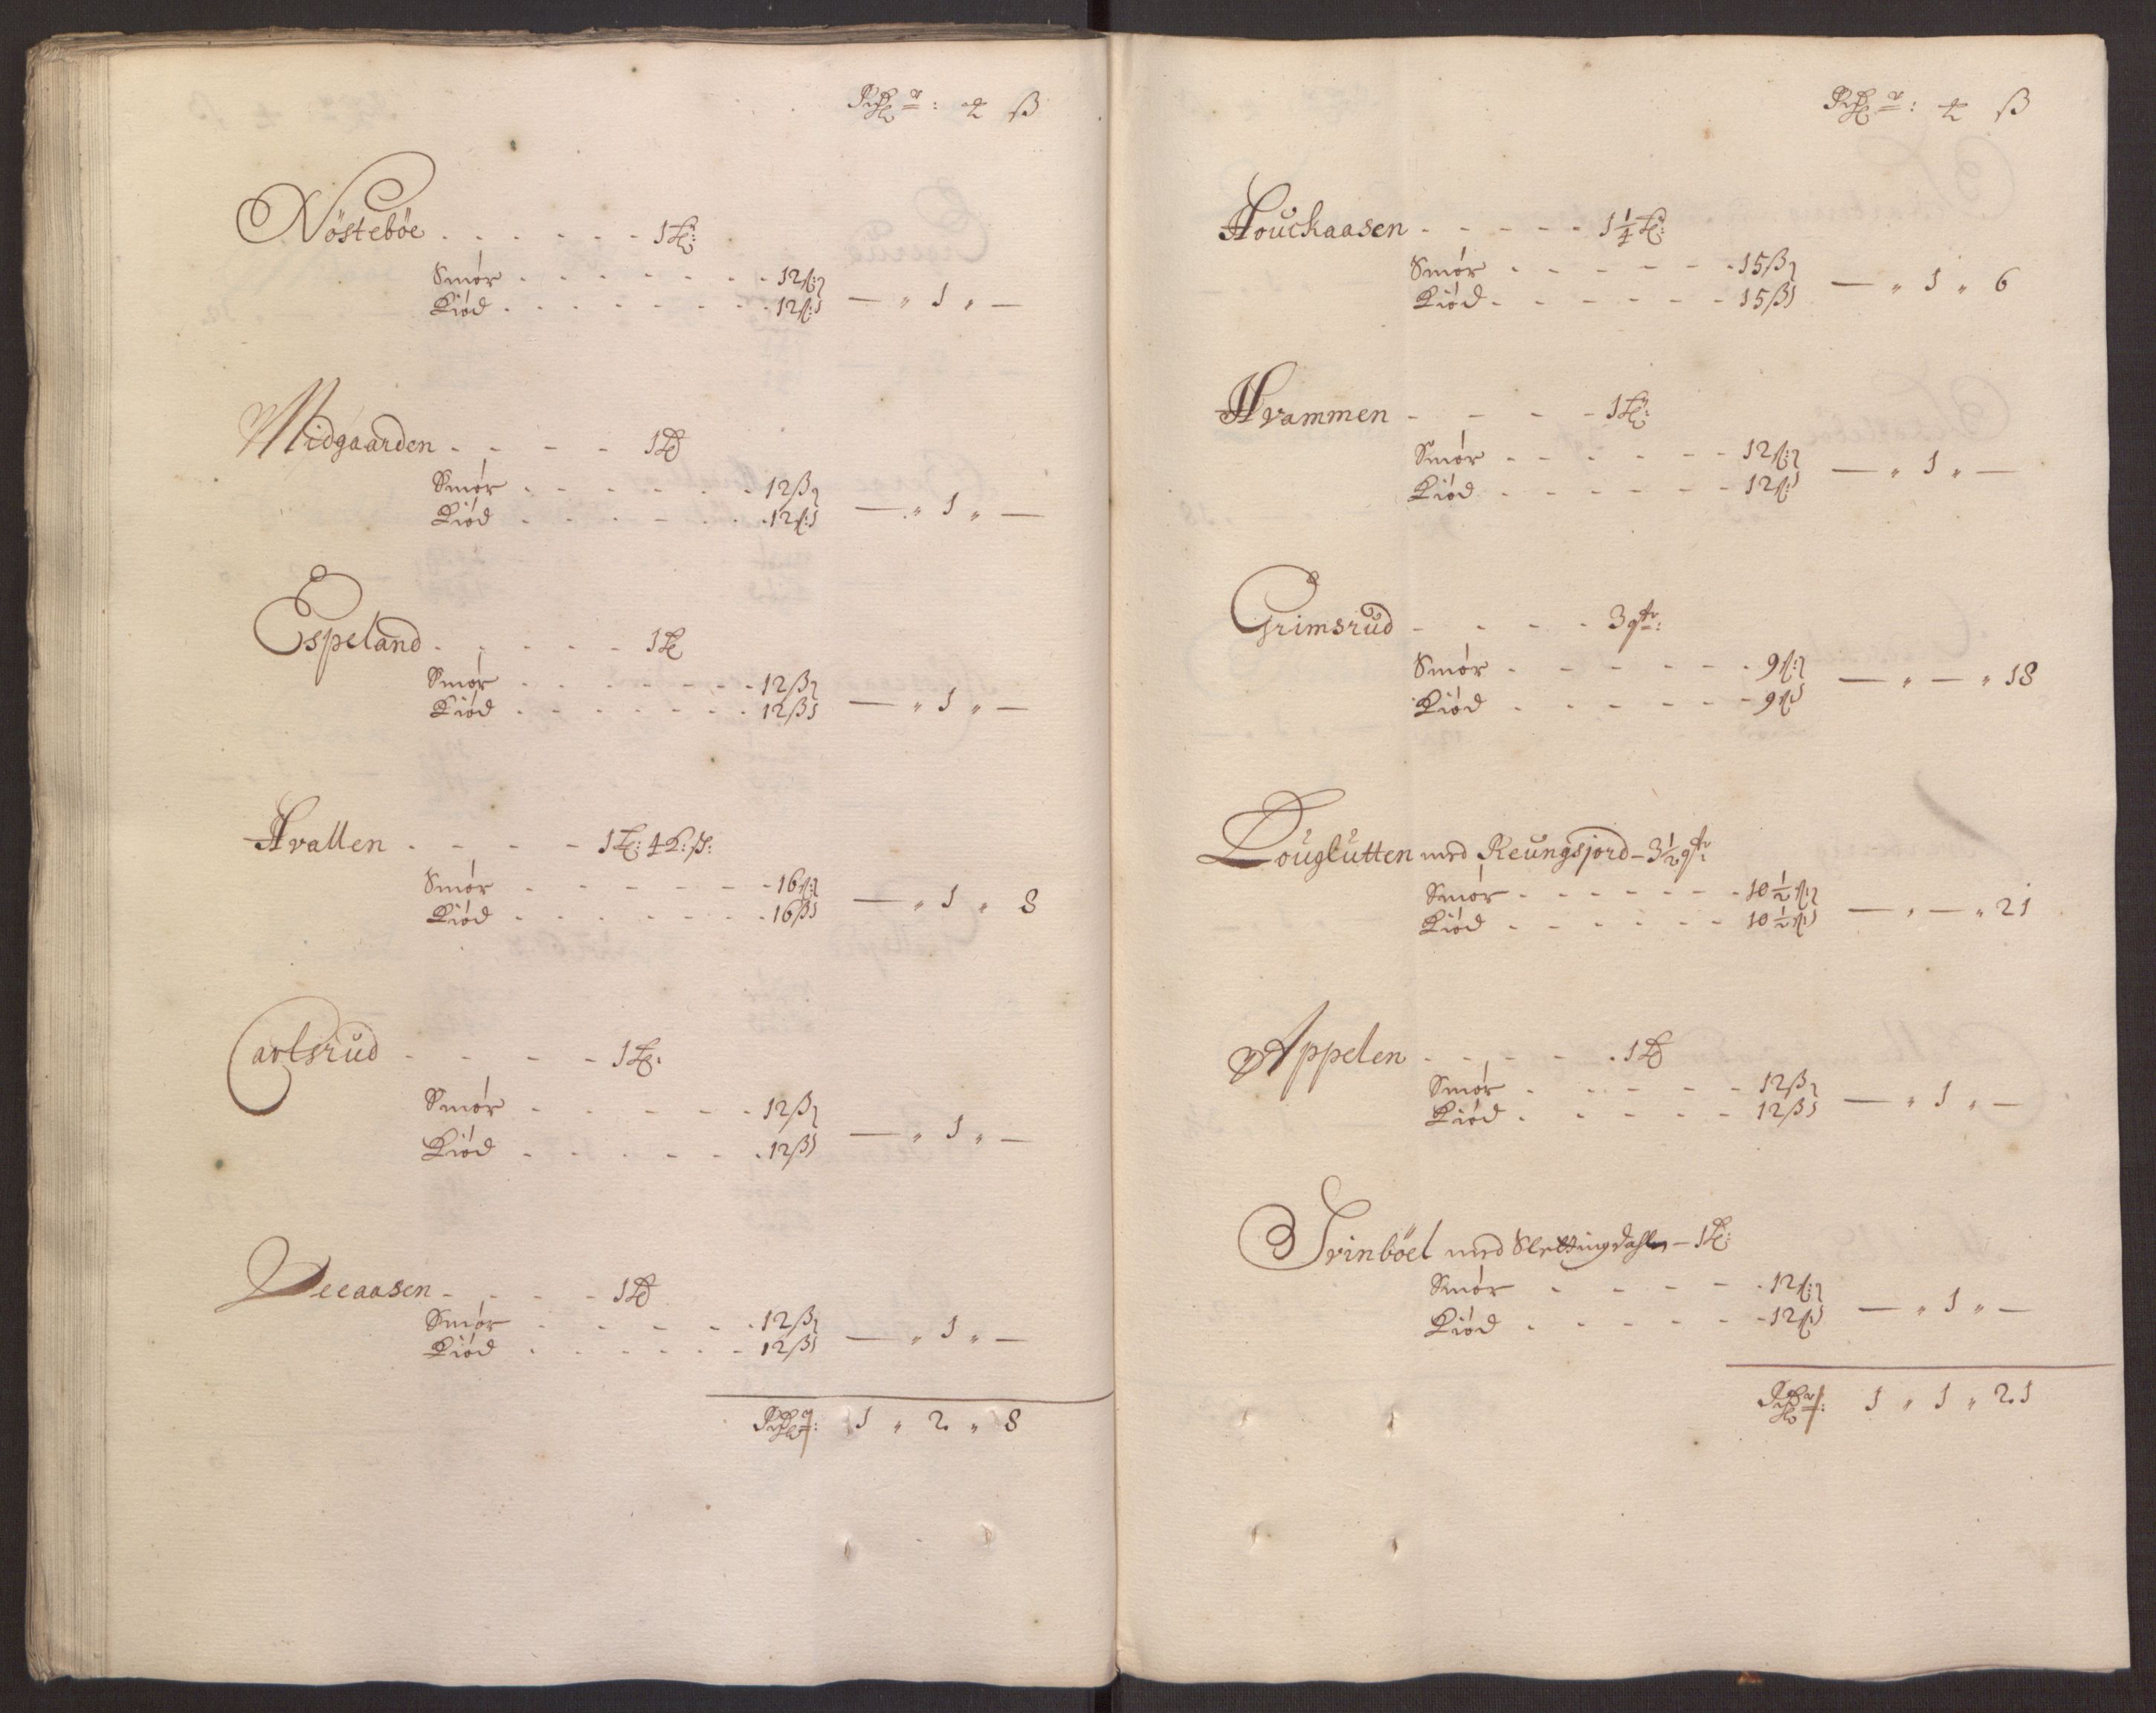 Rdlr: ort ß
Nösteböe - - - - - - 1 Lß:
Smór - - - - - - - 12 ß:
Kiód - - - - - - - 12 ß: — " 1 " —
Midgaarden - - - - 1 Lß
Smór - - - - - - 12 ß
Kiód - - - - - - 12 ß: — " 1 " —
Espeland - - - - - 1 Lß
Smór - - - - - - 12 ß
Kiód - - - - - - 12 ß — " 1 " —
Hvallen - - - - 1 Lß: 4 :
Smór - - - - - - 16 ß:
Kiód - - - - - - 16 ß — " 1 " 8
Carlsrud - - - - 1 Lß:
Smór - - - - - 12 ß
Kiód - - - - - 12 ß — " 1 " —
Veeaasen - - - - 1 Lß
Smór - - - - - 12 ß
Kiód - - - - - 12 ß — " 1 " —
Rdlr: 1 " 2 " 8
Rdlr: ort ß
Houckaasen - - - - - 1 1/4 Lß:
Smór - - - - - - 15 ß
Kiód - - - - - - 15 ß — " 1 " 6
Hvammen - - - - 1 Lß:
Smór - - - - - - 12 ß:
Kiód - - - - - - 12 ß: — " 1 " —
Grimsrud - - - - 3 qtr:
Smór - - - - - - 9 ß:
Kiód - - - - - - 9 ß — " — " 18
Louglutten med Reungsjord - 3 1/2 qtr
Smór - - - - - - 10 1/2 ß:
Kiód - - - - - - 10 1/2 ß — " — " 21
Appelen - - - - - 1 Lß
Smór - - - - - 12 ß
Kiód - - - - - 12 ß — " 1 " —
Trinböel med Slettingdahlen - 1 Lß:
Smór - - - - - 12 ß:
Kiód - - - - - 12 ß — " 1 " —
Rdlr: 1 " 1 " 21